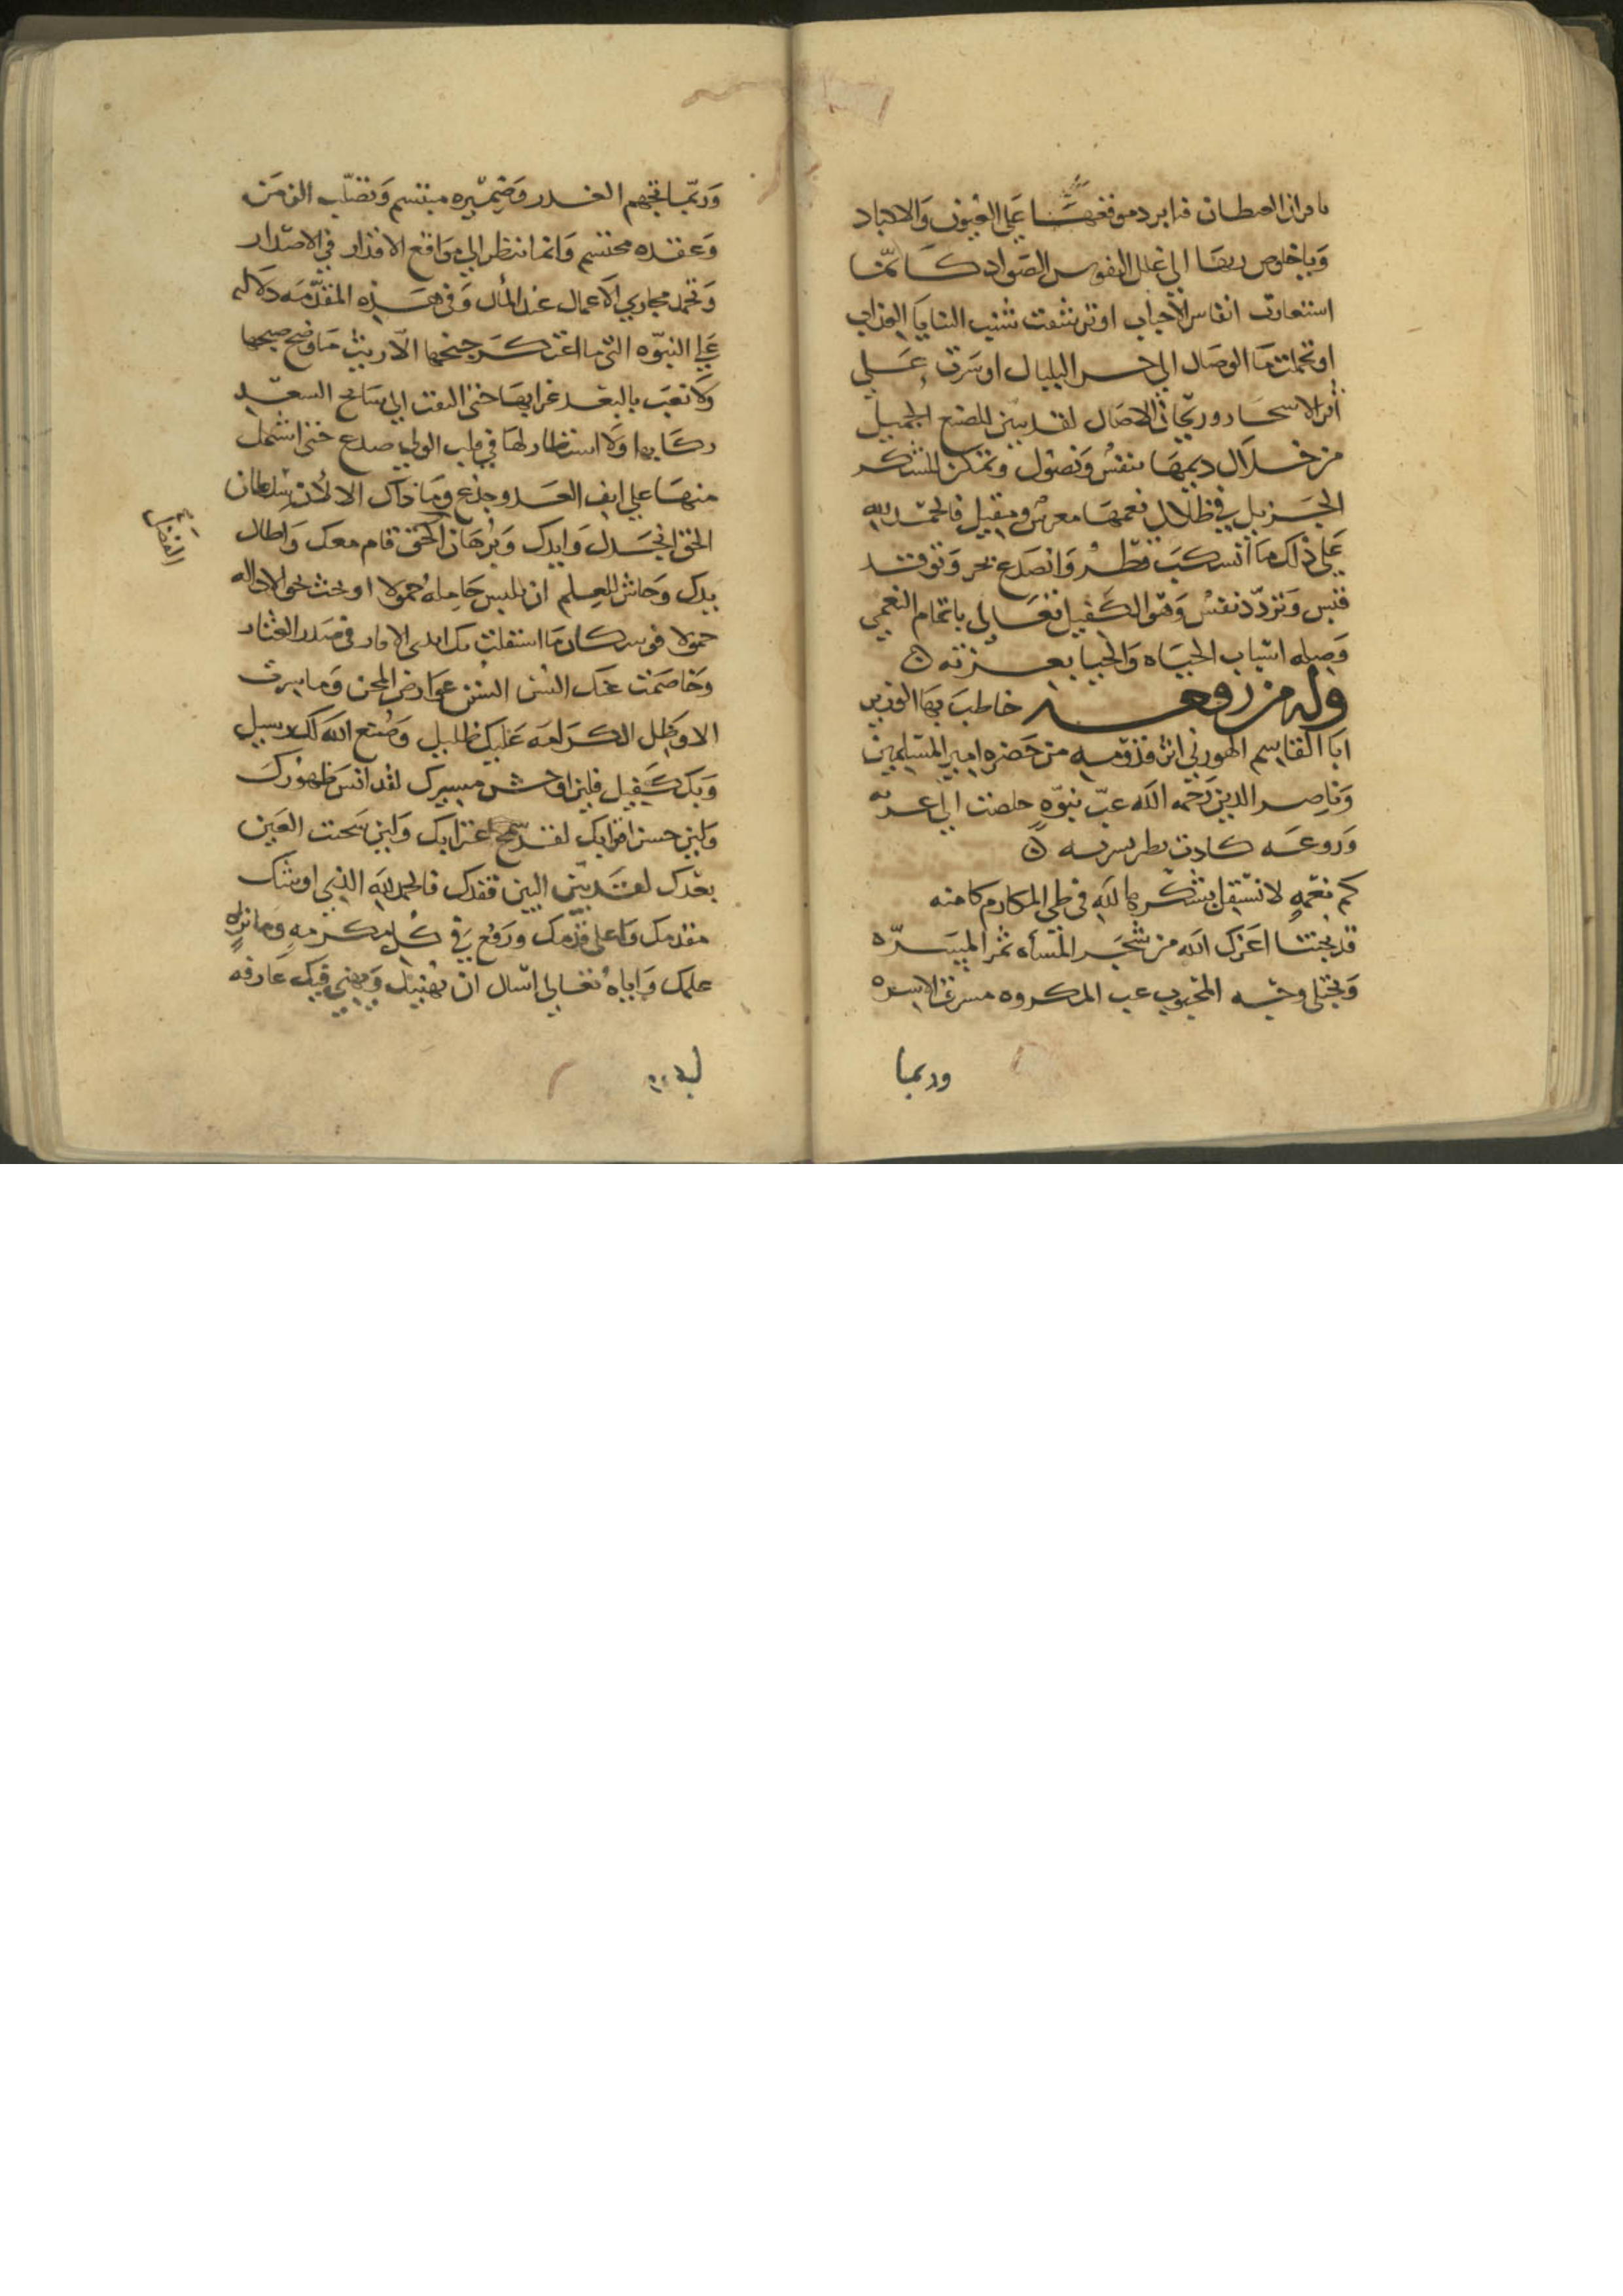 فيا برد موقعها على العيون والاكباد
ويا خلوص ريها الى غلل النفوس الصواد كانما
استعارت انفاس الاحباب او ترشفت شنب الثنايا العذاب
او تحملت ماء الوصال الى البلبال او سرت على
الاسحار وريحان الاصال لقد تبين للصنع الجميل
من خلال ديمها تنفس ونصول وتمكن للشكر
الجزيل في ظلال نعمها معرس ومقيل فالحمد لله
على ذلك ما انسكب قطر وانصدع فجر وتوقد
قبس وتردد نفس وهو الكفيل تعالى باتمام النعمى
وصله اسباب الحياه والحيا بعزته
وله من رقعه خاطب بها الوزير
ابا القاسم الهوزني اثر قدومه من حضره امير المسلمين
وناصر الدين رحمه الله غب نبوه خلصت الى
وروعه كادت
كم نعمه لا تستقل بشكرها لله في طي المكارم كامنه
قد تجتنا اعزك الله من شجر المسأه ثمر المسره
ويجتلى وجه المحبوب غب المكروه مشرق الاسره
وربما
وربما تجهم القدر وضميره مبتسم وتصلب الزمن
وعقده محتسم وانما ننظر الى مواقع الاقدار في الاصدار
وتحمد مجاري الاعمال عند المأل وفي هذه المقدمه دلاله
على النبوه التي ما اعتكر جنحها الا ريث ما وضح صبحها
ولا نعب بالبعد غرابها حتى التفت الى سانح السعد
ركابها ولا استطار لها في قلب الولي صدع حتى اشتمل
منها على انف العدو جدع وما ذاك الا لان سلطان
الفضل
الحق انجدك وايدك وبرهان الحق قام معك واطال
يدك وحاش للعلم ان يلبس حامله خمولا او يحث نحو الاذاله
حمولا ما استقلت بك ايدي في صدر العثار
وخاصمت عنك السن السنن عوارض المحن وما سرت
الا وظل الكرامه عليك ظليل وصنع الله لك رسيل
وبك كفيل فلين اوحش مسيرك لقد انس ظهورك
ولين حسن اقترابك لقد سمج اغترابك ولين سخنت العين
بعدك لقد بين البين فقدك فالحمد لله الذي اوشك
مقدمك واعلى قدمك ورفع في كل مكرمه وماثره
علمك واياه تعالى اسال ان يهنيك ويهني فيك عارفه